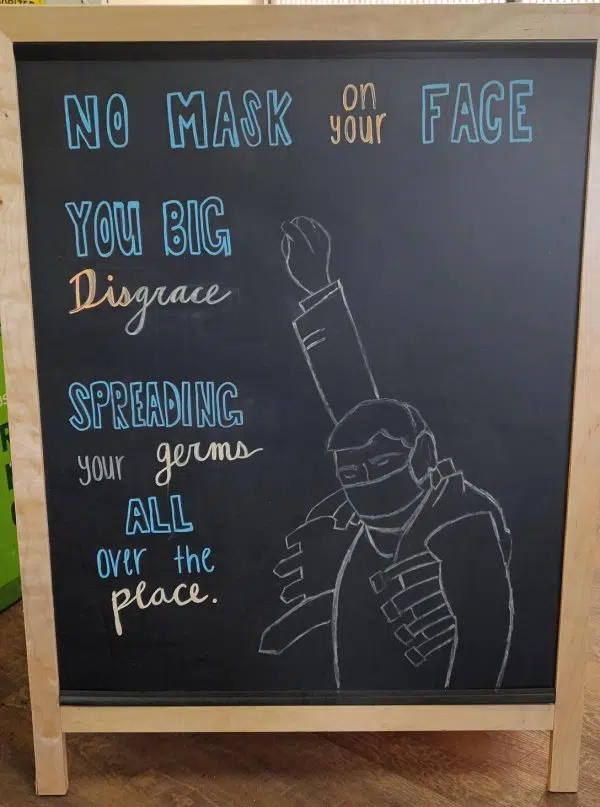 NO MASK on your FACE
YOU BIG
Disgrace
SPREADING
your germs
ALL
over the
place.